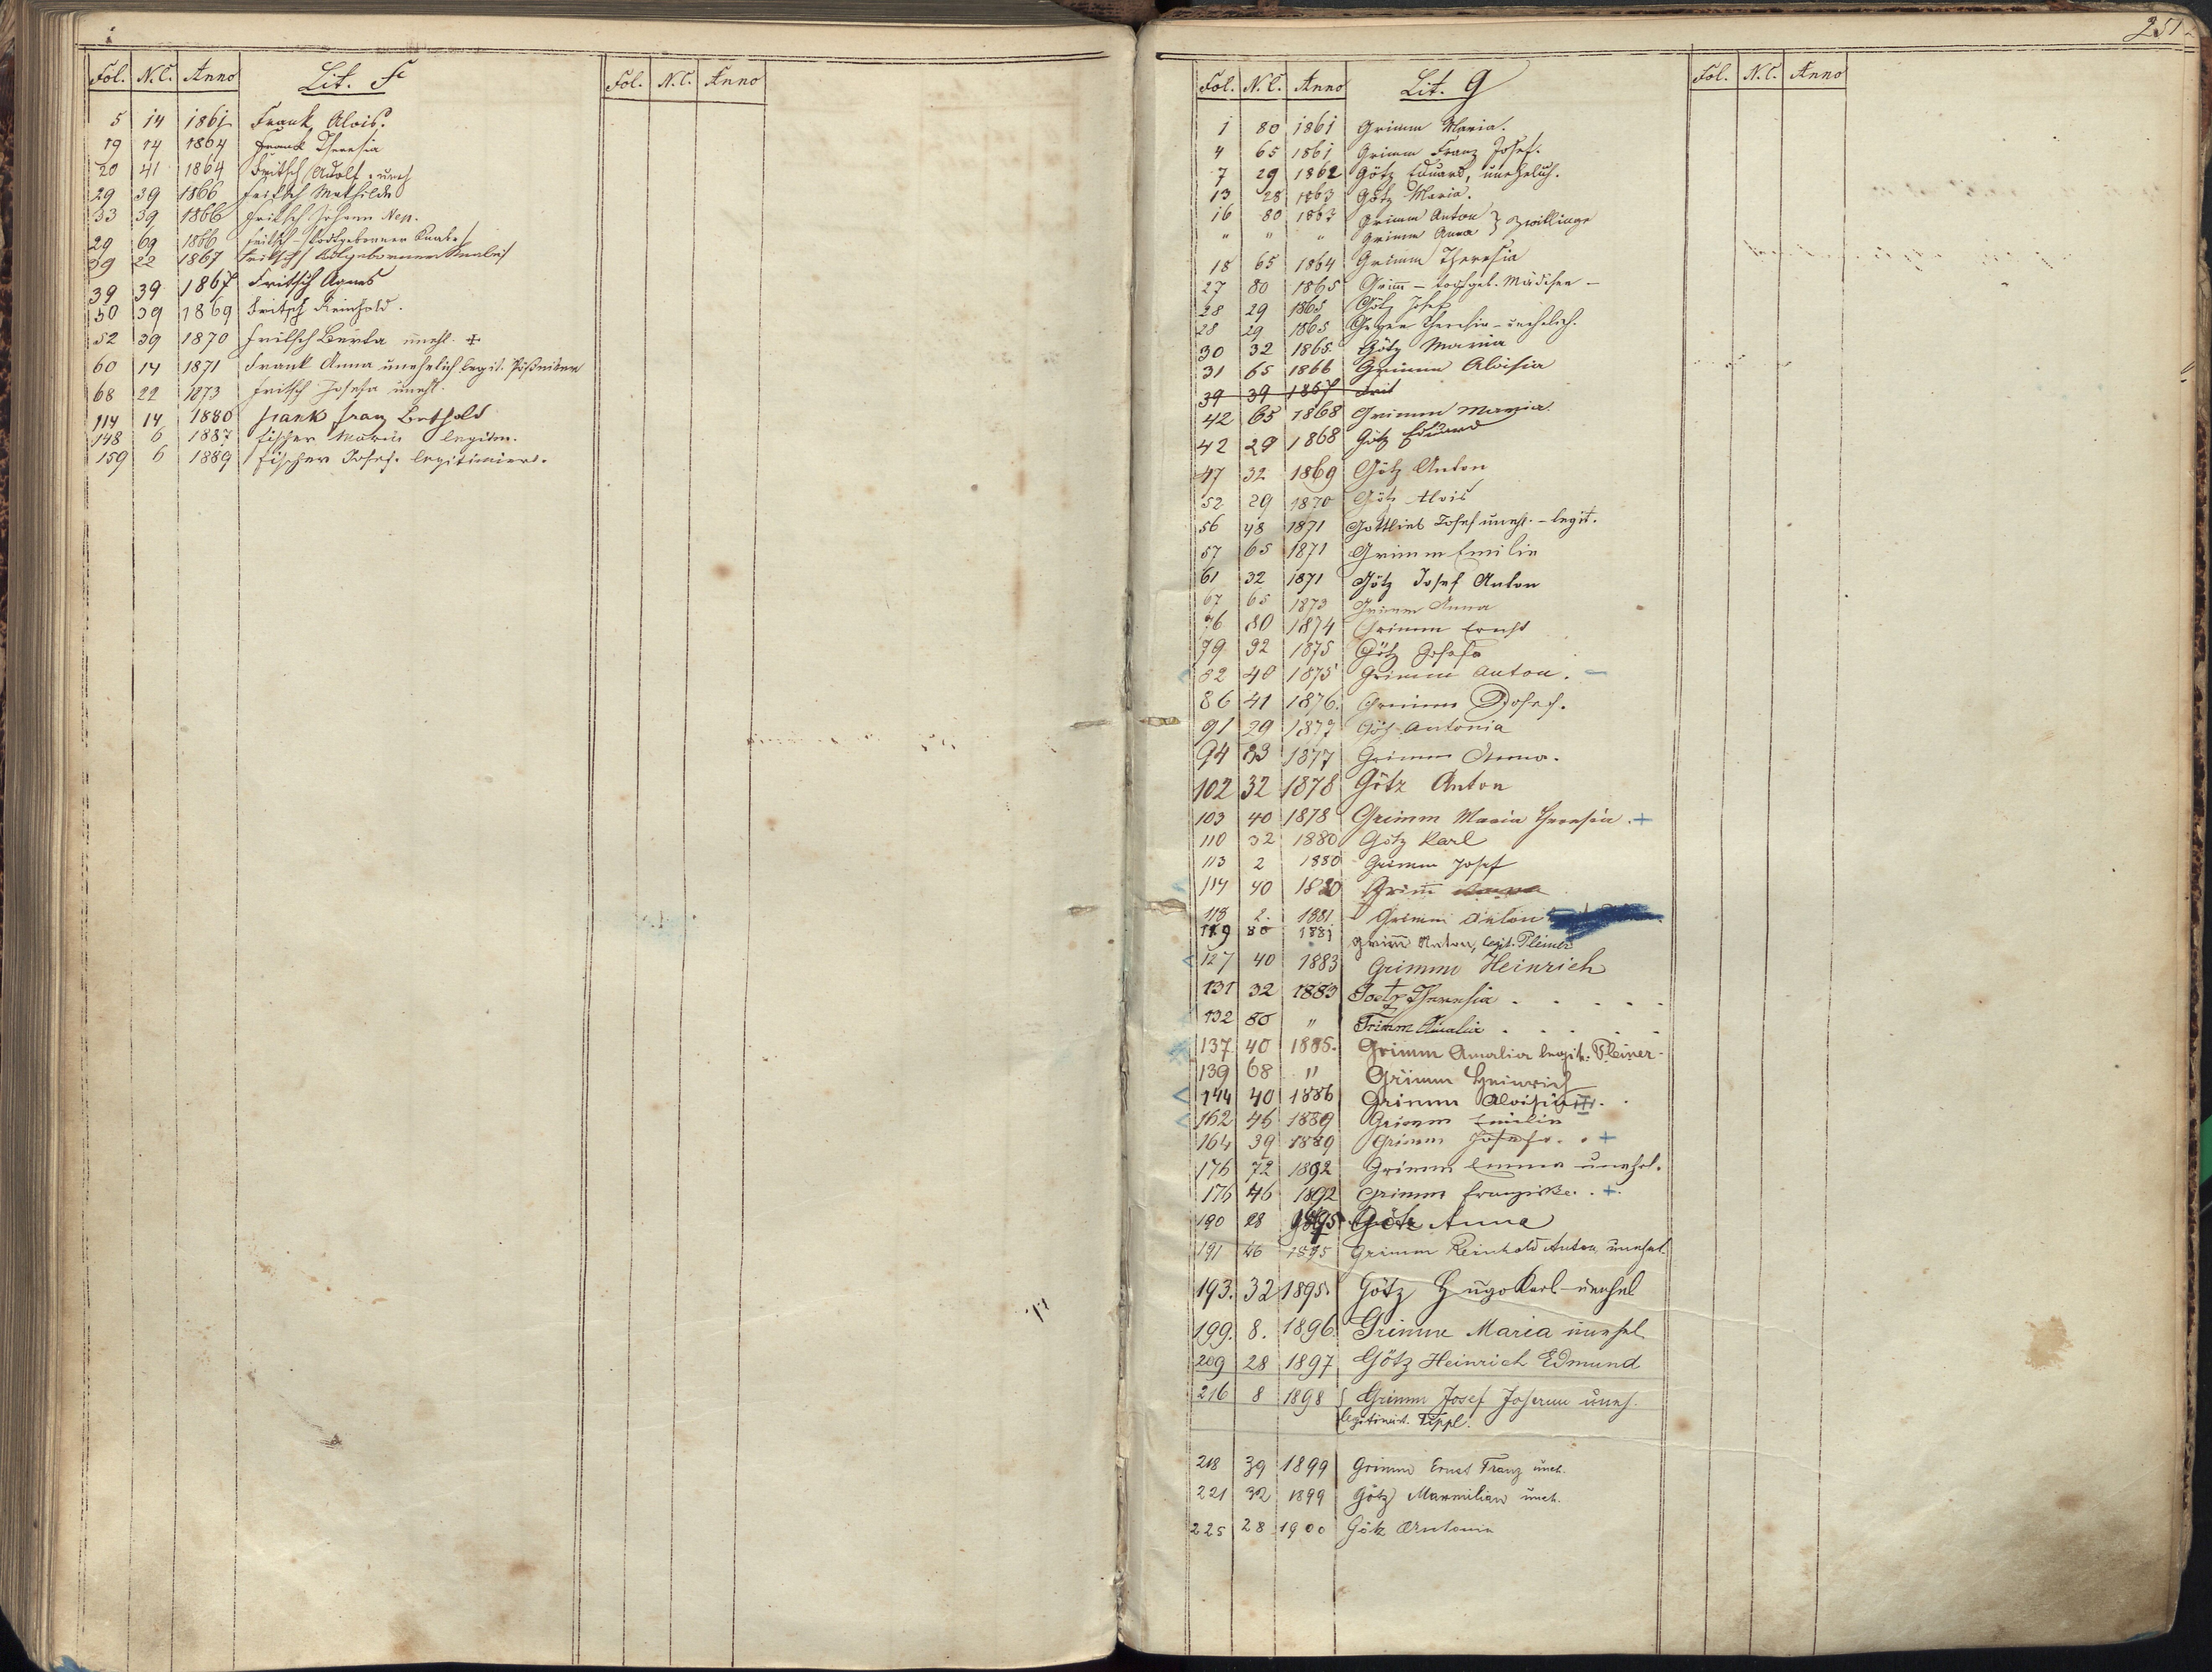 Fol. N.C. Anno Lit. F Fol. N.C. Anno
5 14 1861 Frank Alois.
19 14 1864 Frank Theresia
20 41 1864 Fritsch Adolf, uneh
29 39 1866 Fritsch Mathilde
33 39 1866 Fritsch Johann Nep.
29 69 1866 Fritsch - Todtgeborener Knabe
39 22 1867 Fritsch Todtgeborner Knabe
39 39 1867 Fritsch Agnes
50 39 1869 Fritsch Reinhold.
52 39 1870 Fritsch Berta unehl. +
60 14 1871 Frank Anna unehelich legit.
68 22 1873 Fritsch Josefa unehl.
114 14 1880 Frank Franz Berthold
148 6 1887 Fischer Maria legitim.
159 6 1889 Fischer Josef. legitimiert.
251
Fol. N.C. Anno Lit. G Fol. N.C. Anno
1 80 1861 Grimm Maria.
4 65 1861 Grimm Franz Josef.
7 29 1862 Götz Eduard, unehelich.
13 28 1863 Götz Maria.
16 80 1863 Grimm Anton } Zwillinge
" " " Grimm Anna
18 65 1864 Grimm Theresia
27 80 1865 Grim̄ - todtgeb. Mädchen -
28 29 1865 Götz Josef
28 29 1865 Theresia - unehelich.
30 32 1865 Götz Maria
31 65 1866 Grimm Aloisia
39 39 1867 Frit
42 65 1868 Grimm Maria.
42 29 1868 Götz Eduard
47 32 1869 Götz Anton
52 29 1870 Götz Alois
56 48 1871 Gottlieb Josef unehl. - legit.
57 65 1871 Grimm Emilie
61 32 1871 Götz Josef Anton
67 65 1873 Grimm Anna
76 80 1874 Grimm Ernst
79 32 1875 Götz Josefa
82 40 1875 Grimm Anton. -
86 41 1876. Grimm Josef.
91 29 1877 Götz Antonia
94 83 1877 Grimm Anna.
102 32 1878 Götz Anton
103 40 1878 Grimm Maria Theresia. +
110 32 1880 Götz Karl
113 2 1880 Grimm Josef
114 40 1880 Grim̄
118 2. 1881 Grimm Anton
119 80 1881 Grim̄ Anton, legit. Pleiner
127 40 1883 Grimm Heinrich
131 32 1883 Goetz Theresia . . . . .
132 80 " Grimm Amalia . . . . .
137 40 1885. Grimm Amalia legit. Pleiner
139 68 " Grimm Heinrich
144 40 1886 Grimm Aloisia
162 46 1889 Grimm Emilie
164 39 1889 Grimm Josefa . . +
176 72 1892 Grimm Emma unehel.
176 46 1892 Grimm Franziska . . +
190 28 1895 Götz Anna
191 46 1895 Grimm Reinhold Anton unehel.
193. 32 1895. Götz Hugo Karl - unehel
199. 8. 1896. Grimm Maria unehel.
209 28 1897 Götz Heinrich Edmund
216 8 1898 { Grimm Josef Johann uneh.
legitimirt. Tippl.
218 39 1899 Grimm Ernst Franz uneh.
221 32 1899 Götz Maxmilian uneh.
225 28 1900 Götz Antonia